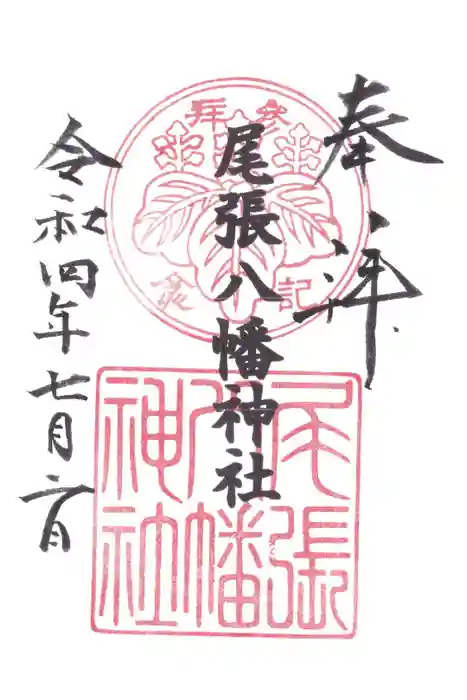 奉拝
尾張八幡神社
令和四年七月二日
参拝記念
尾張
八幡
神社